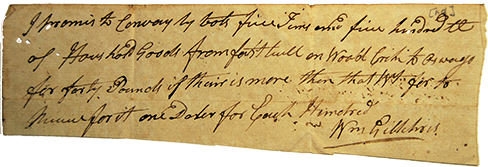 I promis to Convay by bots five Tuns and five hundred Wt
of Hous hord Goods from fort bull on Wood Crick to oswago
for forty Pounds if their is more then that Wt. for to
for it one Doler for Each Hundred
Wm